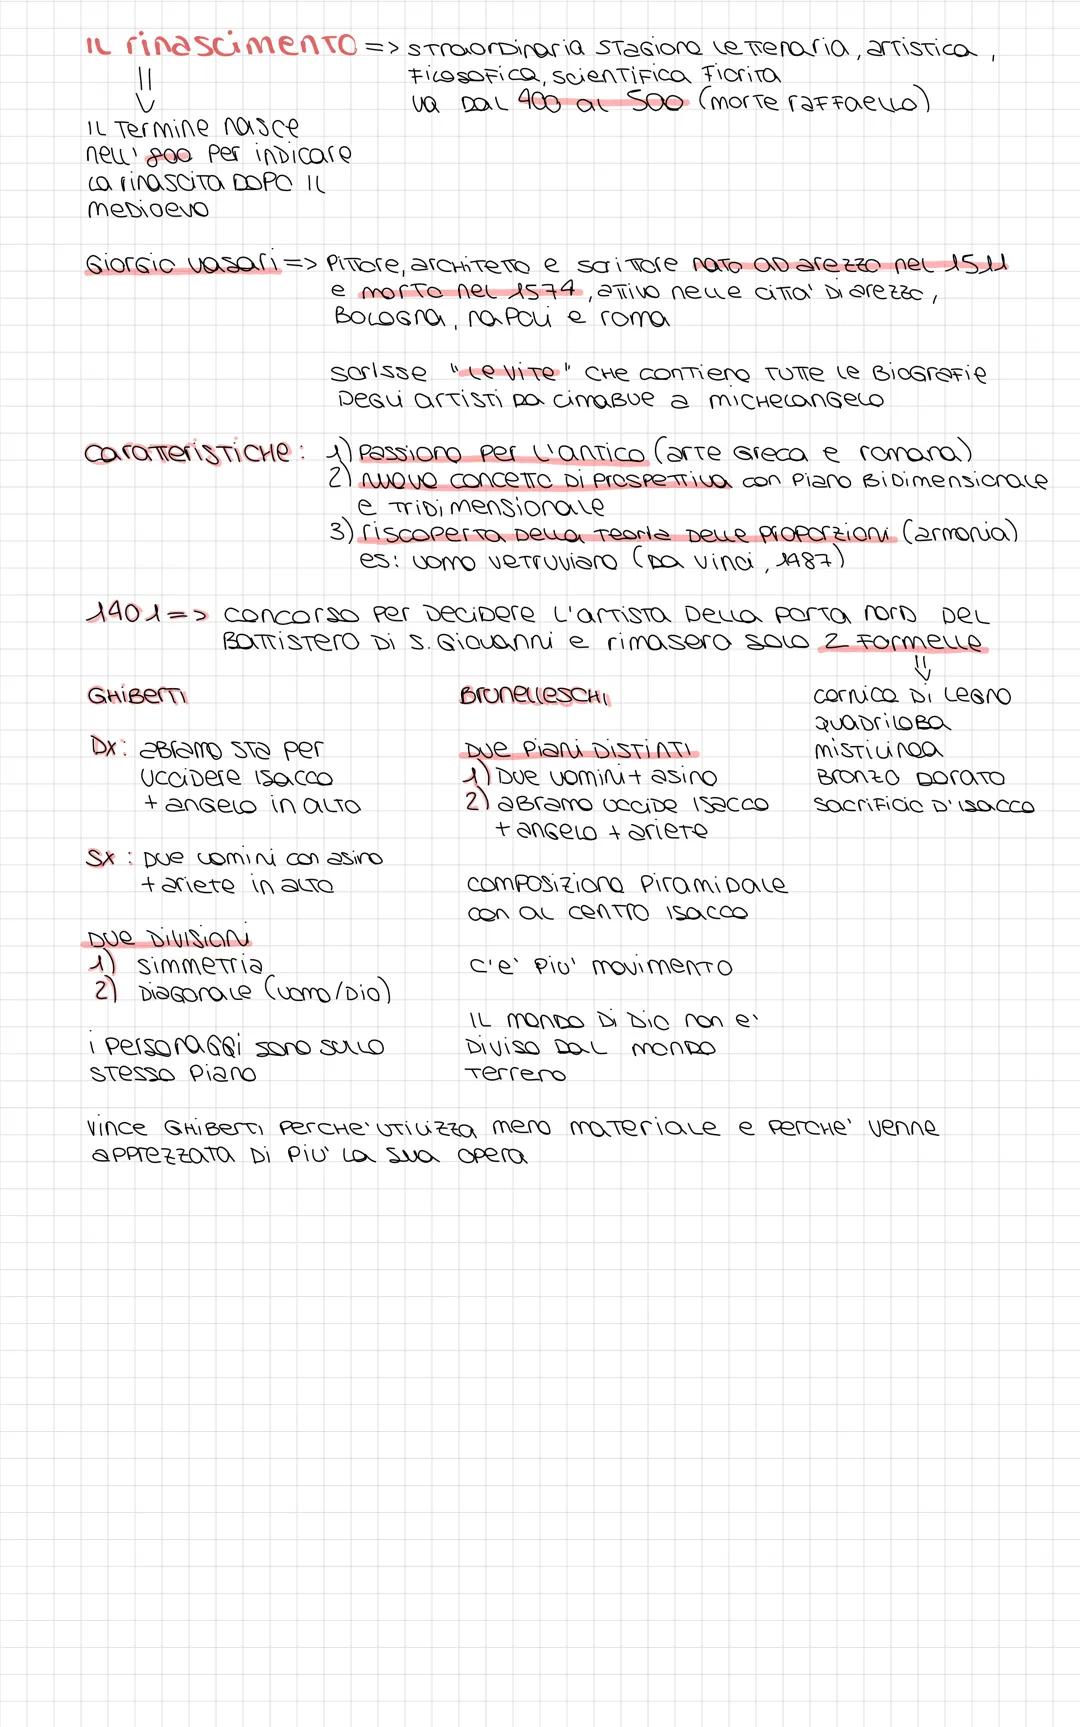 IL rinascimento => straordinaria stagione letteraria, artistica,
filosofica, scientifica fiorita
va dal 400 al 500 (morte raffaello)
IL termine nasce
nell' 800 per indicare
la rinascita dopo il
medioevo
Giorgio vasari => pittore, architetto e scrittore nato ad arezzo nel 1511
e morto nel 1574, attivo nelle citta' di arezzo,
Bologna, napoli e roma
scrisse "le vite" che contiene tutte le biografie
degli artisti da cimabue a michelangelo
caratteristiche: 1) passione per l'antico (arte greca e romana)
2) nuovo concetto di prospettiva con piano bidimensionale
e tridimensionale
3) riscoperta della teoria delle proporzioni (armonia)
es: uomo vetruviano (da vinci, 1487)
1401 => concorso per decidere l'artista della porta nord del
Battistero di S. Giovanni e rimasero solo 2 formelle
GHIBERTI
Dx: abramo sta per
uccidere isacco
+ angelo in alto
Sx: due uomini con asino
+ ariete in alto
Due divisioni
1) simmetria
2) diagonale (uomo/Dio)
i personaggi sono sullo
stesso piano
Brunelleschi
Due piani distinti
1) Due uomini + asino
2) abramo uccide isacco
+ angelo + ariete
composizione piramidale
con al centro isacco
c'e' piu' movimento
IL mondo di Dio non e'
diviso dal mondo
terreno
cornice di legno
quadriloba
mistilinea
Bronzo dorato
sacrificio d'isacco
vince Ghiberti perche' utilizza meno materiale e perche' venne
apprezzata di piu' la sua opera